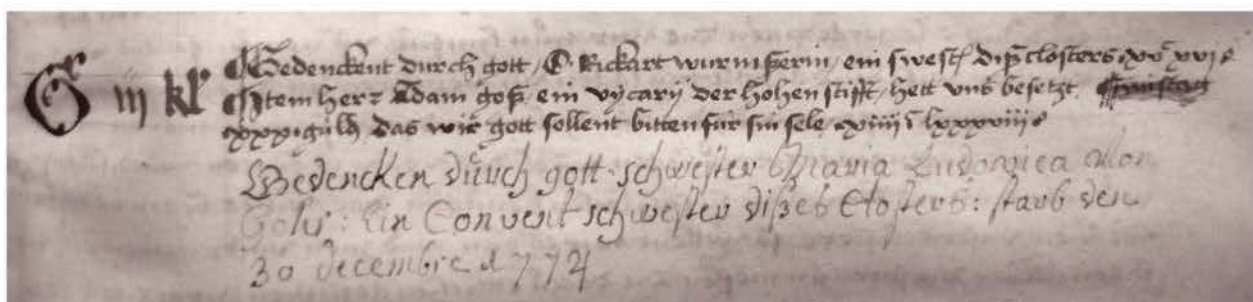 G iij kl' Gedenckent durch gott / S. Rickart wurmßerin / ein swest' diß closters xvͨ xvi
Item herr Adam goß / ein vycarij der hohen stifft / hett vns besetzt
xxxx guld' das wir gott sollent bitten für sin sele xiiijͨ lxxxviij
Gedencken durch gott schwester Maria Ludovica Von
ein Convent schwester dißes Closters: starb den
30 decembre 1774